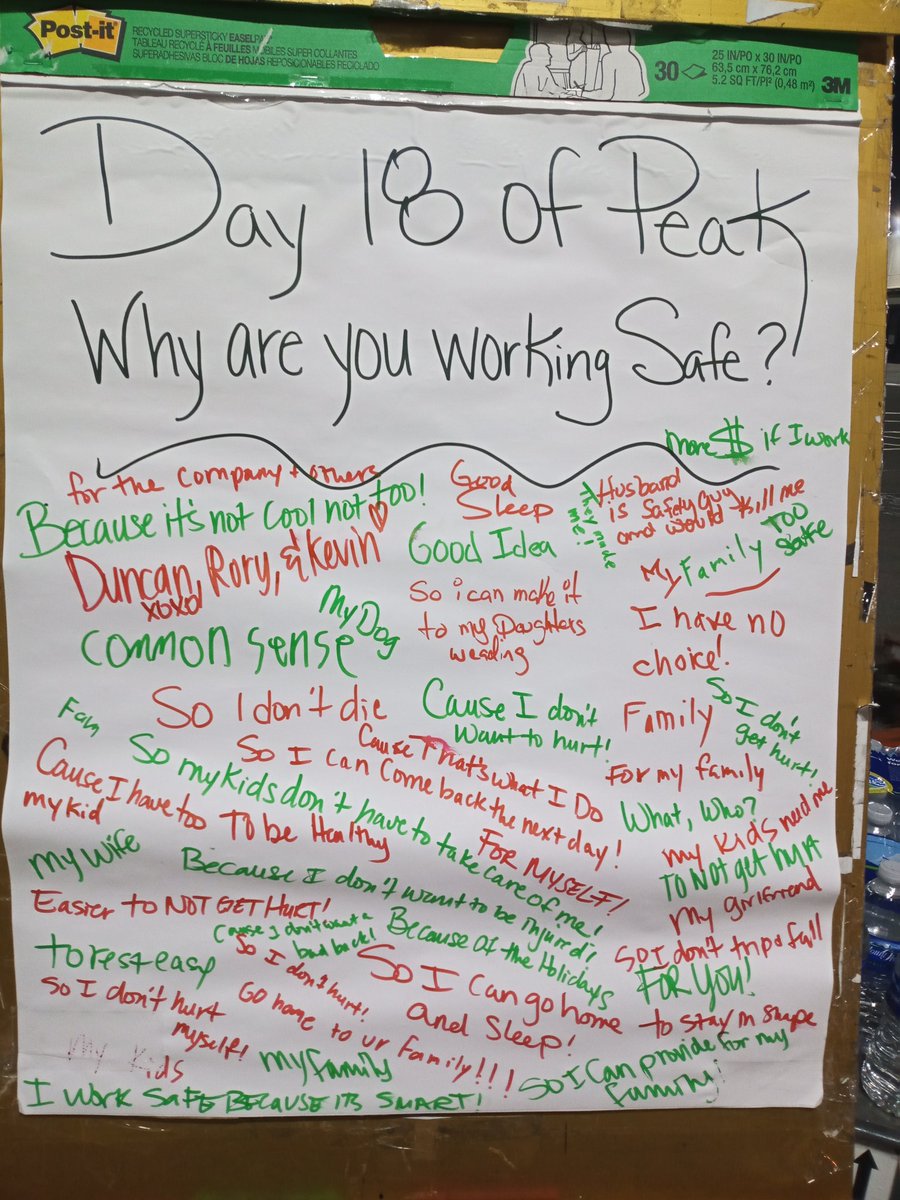 Post-it
RECYCLED SUPERSTICKY EASEL
TABLEAU RECYCLÉ À FEUILLES MOBILES SUPER COLLANTES
SUPERADHESIVAS BLOC DE HOJAS REPOSICIONABLES RECICLADO
30
25 IN/PO x 30 IN/PO
63,5 cm x 76,2 cm
5.2 SQ FT/PI² (0,48 m²)
3M
Day 18 of Peak
Why are you working Safe?
More $ if I work
too
safe
for the company + others
Because it's not cool not too!
Good
Sleep
They made
me!
Husband
is Safety Guy
and would kill me
Duncan, Rory, & Kevin
xoxo
Good Idea
My Family
My Dog
common sense
So i can make it
to my Daughters
weading
I have no
choice!
So I don't die
Cause I don't
want to hurt!
Family
So I don't
get hurt!
Fam
Cause That's what I Do
So I can come back the next day!
For my family
So my kids don't have to take care of me!
What, Who?
Cause I have too
my kid
To be Healthy
FOR MYSELF!
my kids need me
To Not get hurt
my wife
Because I don't want to be injured!
my girlfriend
Easier to NOT GET HURT!
Cause I don't want a
bad back!
Because of the Holidays
So I don't trip & fall
to rest easy
So I don't hurt!
So I Can go home
and sleep!
FOR YOU!
So I don't hurt
myself!
GO home to ur family!!!
to stay in shape
my kids
my family
So I Can provide for my
family!
I work SAFE BECAUSE ITS SMART!